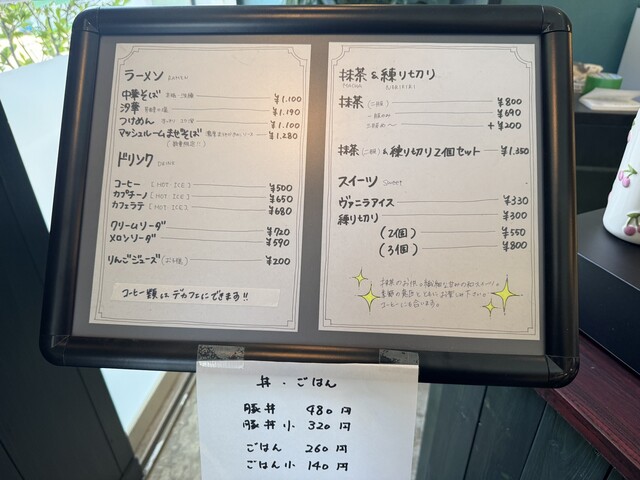 ラーメン
中華そば ¥1.100
汐華 ¥1.190
つけめん ¥1.100
マッシュルームまぜそば ¥1.280
(数量限定!!)
ドリンク DRINK
コーヒー [HOT・ICE] ¥500
カプチーノ [HOT・ICE] ¥650
カフェラテ [HOT・ICE] ¥680
クリームソーダ ¥720
メロンソーダ ¥590
りんごジュース ¥200
コーヒー類は デカフェにできます!!
抹茶 & 練り切り
MATCHA NERIKIRI
抹茶 (二服) ¥800
一服のみ ¥690
三服め〜 +¥200
抹茶 (二服) & 練り切り2個セット ¥1.350
スイーツ Sweet
ヴァニラアイス ¥330
練り切り ¥300
(2個) ¥550
(3個) ¥800
コーヒーにも合います。
丼・ごはん
豚丼 480円
豚丼 小 320円
ごはん 260円
ごはん 小 140円